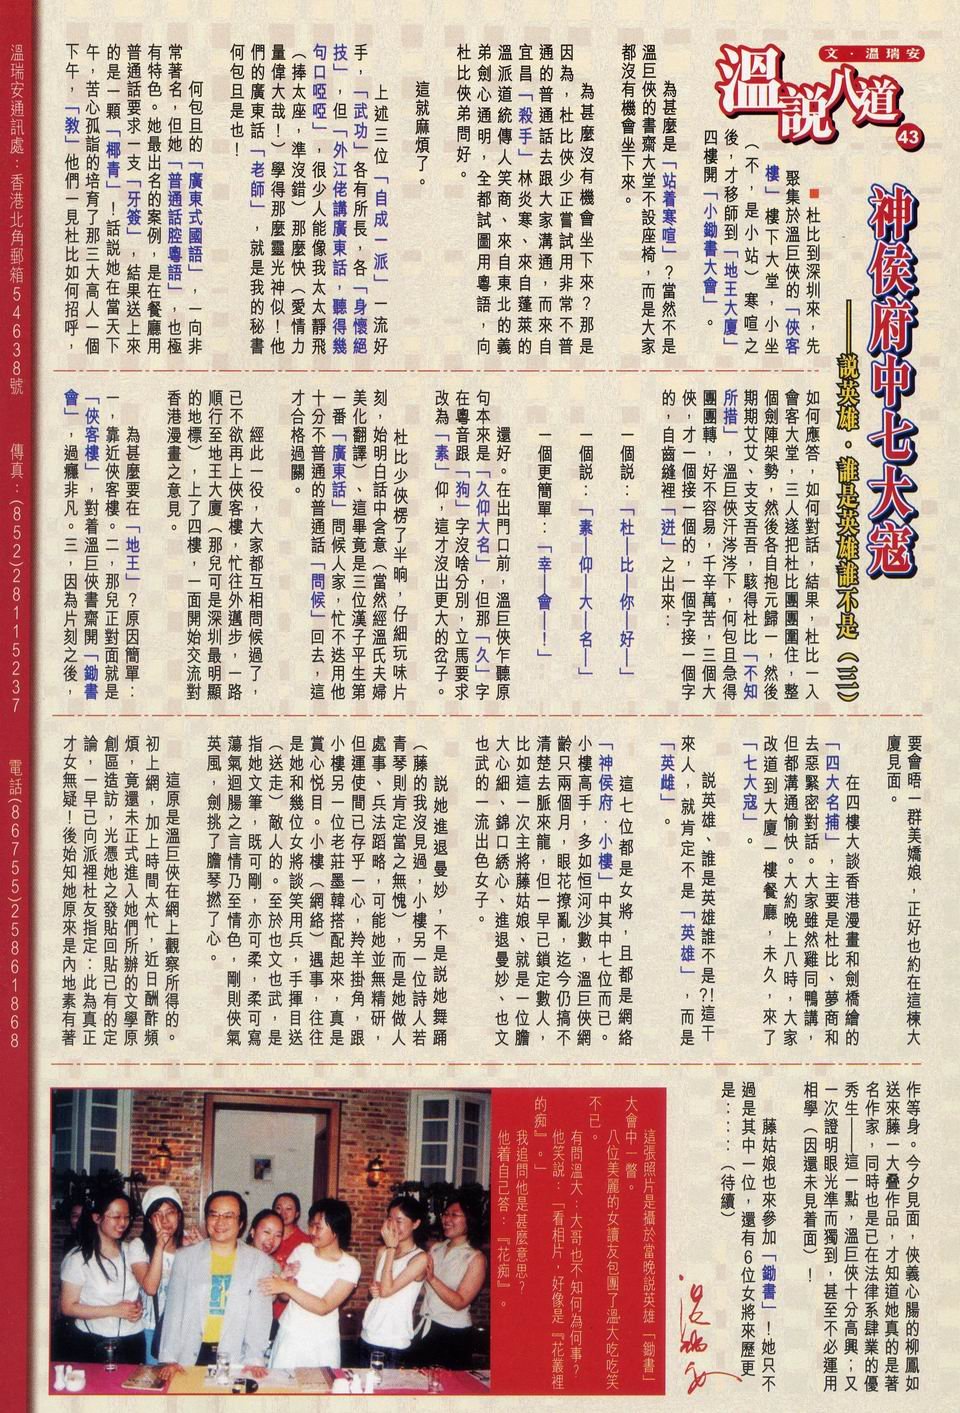 文．溫瑞安
溫說八道
43
神侯府中七大寇
——說英雄．誰是英雄誰不是（三）
■杜比到深圳來，先
聚集於溫巨俠的「俠客
樓」樓下大堂，小坐
（不，是小站）寒暄之
後，才移師到「地王大廈」
四樓開「小鋤書大會」。
為甚麼是「站着寒暄」？當然不是
溫巨俠的書齋大堂不設座椅，而是大家
都沒有機會坐下來。
為甚麼沒有機會坐下來？那是
因為，杜比俠少正嘗試用非常不普
通的普通話去跟大家溝通，而來自
宜昌「殺手」林炎寒、來自蓬萊的
溫派道統傳人笑商、來自東北的義
弟劍心通明，全都試圖用粵語，向
杜比俠弟問好。
這就麻煩了。
上述三位「自成一派」一流好
手，「武功」各有所長，各「身懷絕
技」，但「外江佬講廣東話，聽得幾
句口啞啞」，很少人能像我太太靜飛
（捧太座，準沒錯）那麼快（愛情力
量偉大哉！）學得那麼靈光神似！他
們的廣東話「老師」，就是我的秘書
何包旦是也！
何包旦的「廣東式國語」，一向非
常著名，但她「普通話腔粵語」，也極
有特色。她最出名的案例，是在餐廳用
普通話要求一支「牙簽」，結果送上來
的是一顆「椰青」！話說她在當天下
午，苦心孤詣的培育了那三大高人一個
下午，「教」他們一見杜比如何招呼，
如何應答，如何對話，結果，杜比一入
會客大堂，三人遂把杜比團團圍住，整
個劍陣架勢，然後各自抱元歸一，然後
期期艾艾、支支吾吾，駭得杜比「不知
所措」，溫巨俠汗涔涔下，何包旦急得
團團轉，好不容易，千辛萬苦，三個大
俠，才一個接一個的，一個字接一個字
的，自齒縫裡「迸」之出來：
一個說：「杜—比—你—好—」
一個說：「素—仰—大—名—」
一個更簡單：「幸—會—！」
還好。在出門口前，溫巨俠乍聽原
句本來是「久仰大名」，但那「久」字
在粵音跟「狗」字沒啥分別，立馬要求
改為「素」仰，這才沒出更大的岔子。
杜比少俠楞了半晌，仔細玩味片
刻，始明白話中含意（當然經溫氏夫婦
美化翻譯）、這畢竟是三位漢子平生第
一番「廣東話」問候人家，忙不迭用他
十分不普通的普通話「問候」回去，這
才合格過關。
經此一役，大家都互相問候過了，
已不欲再上俠客樓，忙往外邁步，一路
順行至地王大廈（那兒可是深圳最明顯
的地標），上了四樓，一面開始交流對
香港漫畫之意見。
為甚麼要在「地王」？原因簡單：
一，靠近俠客樓。二，那兒正對面就是
「俠客樓」，對着溫巨俠書齋開「鋤書
會」，過癮非凡。三，因為片刻之後，
要會晤一群美嬌娘，正好也約在這棟大
廈見面。
在四樓大談香港漫畫和劍橋繪的
「四大名捕」，主要是杜比、夢商和
去惡緊密對話。大家雖然雞同鴨講，
但都溝通愉快。大約晚上八時，大家
改道到大廈一樓餐廳，未久，來了
「七大寇」。
說英雄、誰是英雄誰不是?!這干
來人，就肯定不是「英雄」，而是
「英雌」。
這七位都是女將，且都是網絡
「神侯府．小樓」中其中七位而已。
小樓高手，多如恒河沙數，溫巨俠網
齡只兩個月，眼花撩亂，迄今仍搞不
清楚去脈來龍，但一早已鎖定數人，
比如這一次主將藤姑娘、就是一位膽
大心細、錦口綉心、進退曼妙、也文
也武的一流出色女子。
說她進退曼妙，不是說她舞踊
（藤的我沒見過，小樓另一位詩人若
青琴則肯定當之無愧），而是她做人
處事、兵法蹈略，可能她並無精研，
但運使間已存乎一心，羚羊掛角，跟
小樓另一位老莊墨韓搭配起來，真是
賞心悅目。小樓（網絡）遇事，往往
是她和幾位女將談笑用兵，手揮目送
（送走）敵人的。至於也文也武，是
指她文筆，既可剛，亦可柔，柔可寫
蕩氣迴腸之言情乃至情色，剛則俠氣
英風，劍挑了膽琴撚了心。
這原是溫巨俠在網上觀察所得的。
初上網，加上時間太忙，近日酬酢頻
煩，竟還未正式進入她們所辦的文學原
創區造訪，光憑她之發貼回貼已有的定
論，一早已向派裡杜友指定：此為真正
才女無疑！後始知她原來是內地素有著
作等身。今夕見面，俠義心腸的柳鳳如
送來藤一大叠作品，才知道她真的是著
名作家，同時也是已在法律系肆業的優
秀生——這一點，溫巨俠十分高興；又
一次證明眼光準而獨到，甚至不必運用
相學（因還未見着面）！
藤姑娘也來參加「鋤書」！她只不
過是其中一位，還有6位女將來歷更
是：：：（待續）
溫瑞安
這張照片是攝於當晚說英雄「鋤書」
大會中一瞥。
八位美麗的女讀友包團了溫大吃吃笑
不已。
有問溫大：大哥也不知何為何事？
他笑說：「看相片，好像是『花叢裡
的痴』。」
我追問他是甚麼意思？
他着自己答：『花痴』。
溫瑞安通訊處：香港北角郵箱54638號
傳真：(852)28115237
電話(86755)25861868